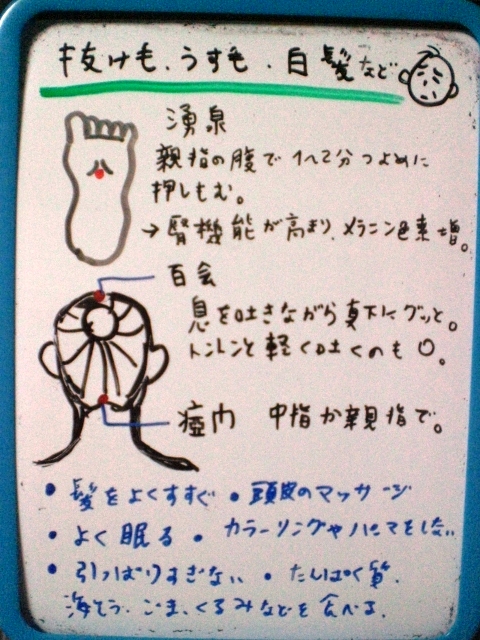 抜け毛、うす毛、白髪など
湧泉
親指の腹で1〜2分つよめに
押しもむ。
→腎機能が高まり、メラニン色素増。
百会
息を吐きながら真下にグッと。
トントンと軽く吐くのも○。
瘂門 中指か親指で。
・髪をよくすすぐ ・頭皮のマッサージ
・よく眠る ・カラーリングやパーマをしない
・引っぱりすぎない ・たんぱく質、
海そう、ごま、くるみなどを食べる。